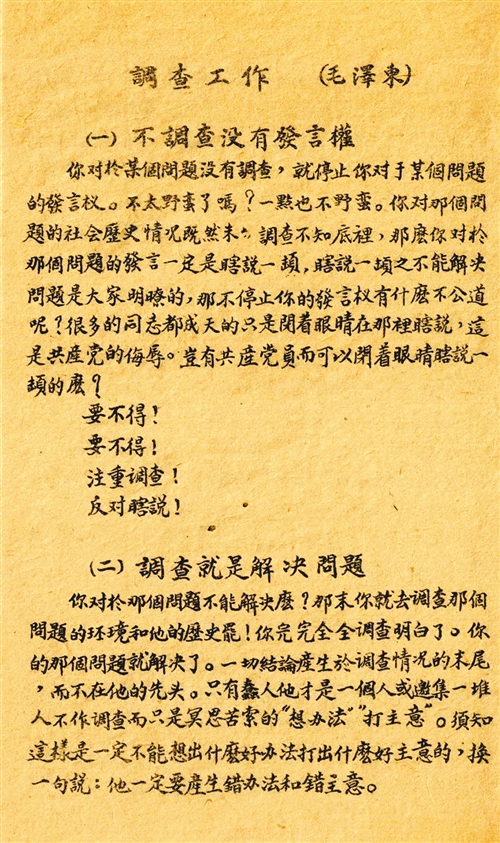 調查工作 (毛澤東)
(一) 不調查没有發言權
你对於某個問題没有調查，就停止你对于某個問題
的發言权。不太野蛮了嗎？一點也不野蛮。你对那個問
題的社会歷史情况既然未 調查不知底裡，那麽你对於
那個問題的發言一定是瞎説一頭，瞎説一頭之不能解决
問題是大家明瞭的，那不停止你的發言权有什麽不公道
呢？很多的同志都成天的只是閉着眼睛在那裡瞎説，這
是共産党的侮辱。豈有共産党員而可以閉着眼睛瞎説一
頭的麽？
要不得！
要不得！
注重调查！
反对瞎説！
(二) 調查就是解决問題
你对於那個問題不能解决麽？那末你就去调查那個
問題的环境和他的歷史罷！你完完全全調查明白了。你
的那個問題就解决了。一切結論産生於調查情况的末尾
，而不在他的先头。只有蠢人他才是一個人或邀集一堆
人不作調查而只是冥思苦索的“想办法”“打主意”。須知
這樣是一定不能想出什麽好办法打出什麽好主意的，换
一句説：他一定要産生錯办法和錯主意。